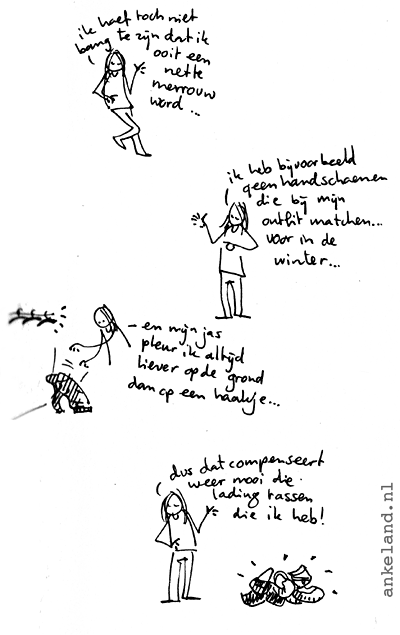 ik hoef toch niet
bang te zijn dat ik
ooit een
nette
mevrouw
word...
ik heb bijvoorbeeld
geen handschoenen
die bij mijn
outfit matchen...
voor in de
winter...
- en mijn jas
pleur ik altijd
liever op de grond
dan op een haakje...
dus dat compenseert
weer mooi die
lading tassen
die ik heb!
ankeland.nl